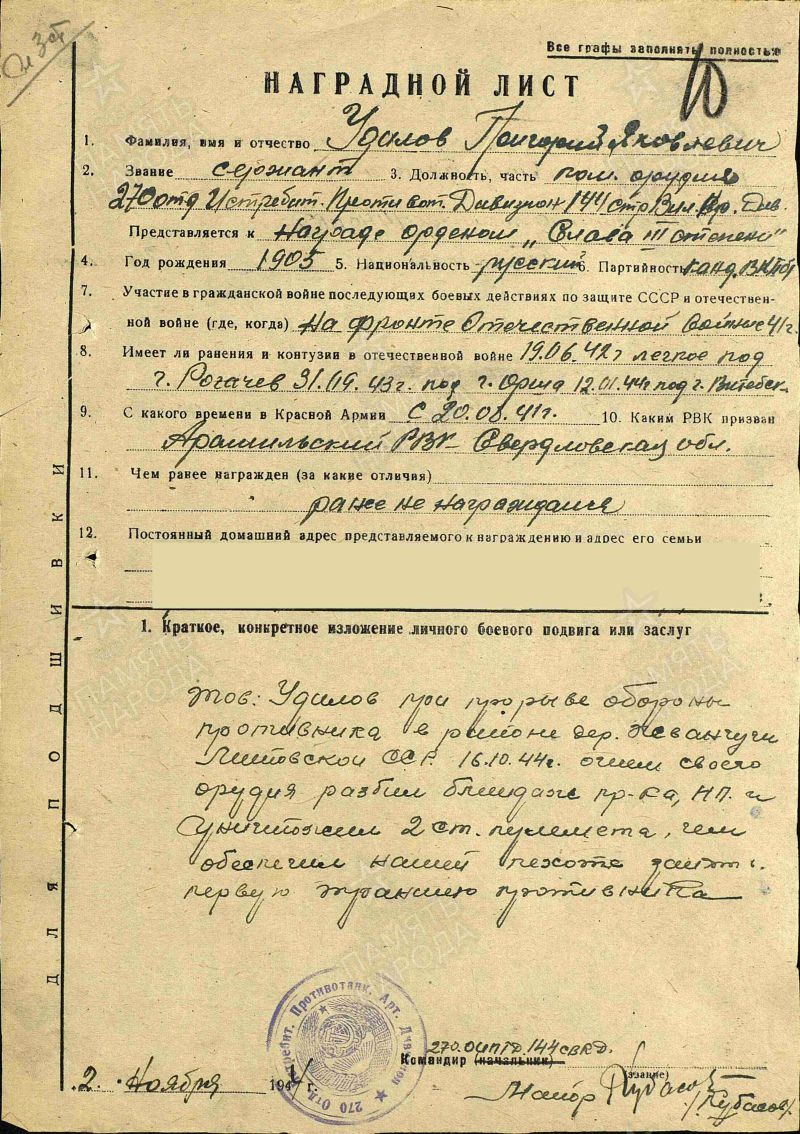 Все графы заполнять полностью
10
НАГРАДНОЙ ЛИСТ
1. Фамилия, имя и отчество Удилов Григорий Яковлевич
2. Звание сержант 3. Должность, часть ком. орудия
270 отд Истребит. Противот. Дивизион 144 стр Вил. Кр. Див.
Представляется к Награде орденом „Слава III степени"
4. Год рождения 1905 5. Национальность русский 6. Партийность канд. ВКПб
7. Участие в гражданской войне последующих боевых действиях по защите СССР и отечествен-
ной войне (где, когда) На фронте Отечественной войны с 41 г.
8. Имеет ли ранения и контузии в отечественной войне 19.06.42 г легкое под
г. Рогачев 31.09.43 г. под г. Орша 12.01.44 г под г. Витебск
9. С какого времени в Красной Армии С 20.08.41 г. 10. Каким РВК призван
Арамильский РВК Свердловская обл.
11. Чем ранее награжден (за какие отличия)
ранже не награждался
12. Постоянный домашний адрес представляемого к награждению и адрес его семьи
1. Краткое, конкретное изложение личного боевого подвига или заслуг
тов. Удилов при прорыве обороны
противника в районе дер.
Литовской ССР. 16.10.44 г. огнем своего
орудия разбил блиндаж пр-ка, НП. и
уничтожил 2 ст. пулемета, чем
обеспечил нашей пехоте занять
первую траншею противника
270 ОИПТД 144 СВКД.
Командир (начальник)
(звание)
2. Ноября 1944 г. Майор Кубасов /Кубасов/
270 Отд. Истребит. Противотанк. Арт. Дивизион
ДЛЯ ПОДШИВКИ
ПАМЯТЬ НАРОДА